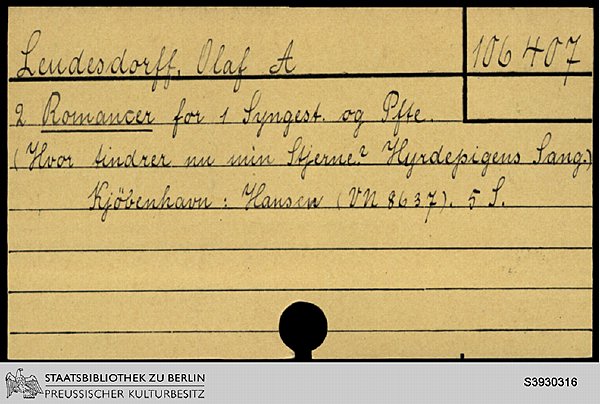 Lendesdorff, Olaf A
106 407
2 Romancer for 1 Syngest. og Pfte.
(Hvor tindrer nu min Stjerne? Hyrdepigens Sang.)
Kjöbenhavn: Hansen (VN 8637). 5 S.
STAATSBIBLIOTHEK ZU BERLIN
PREUSSISCHER KULTURBESITZ
S3930316